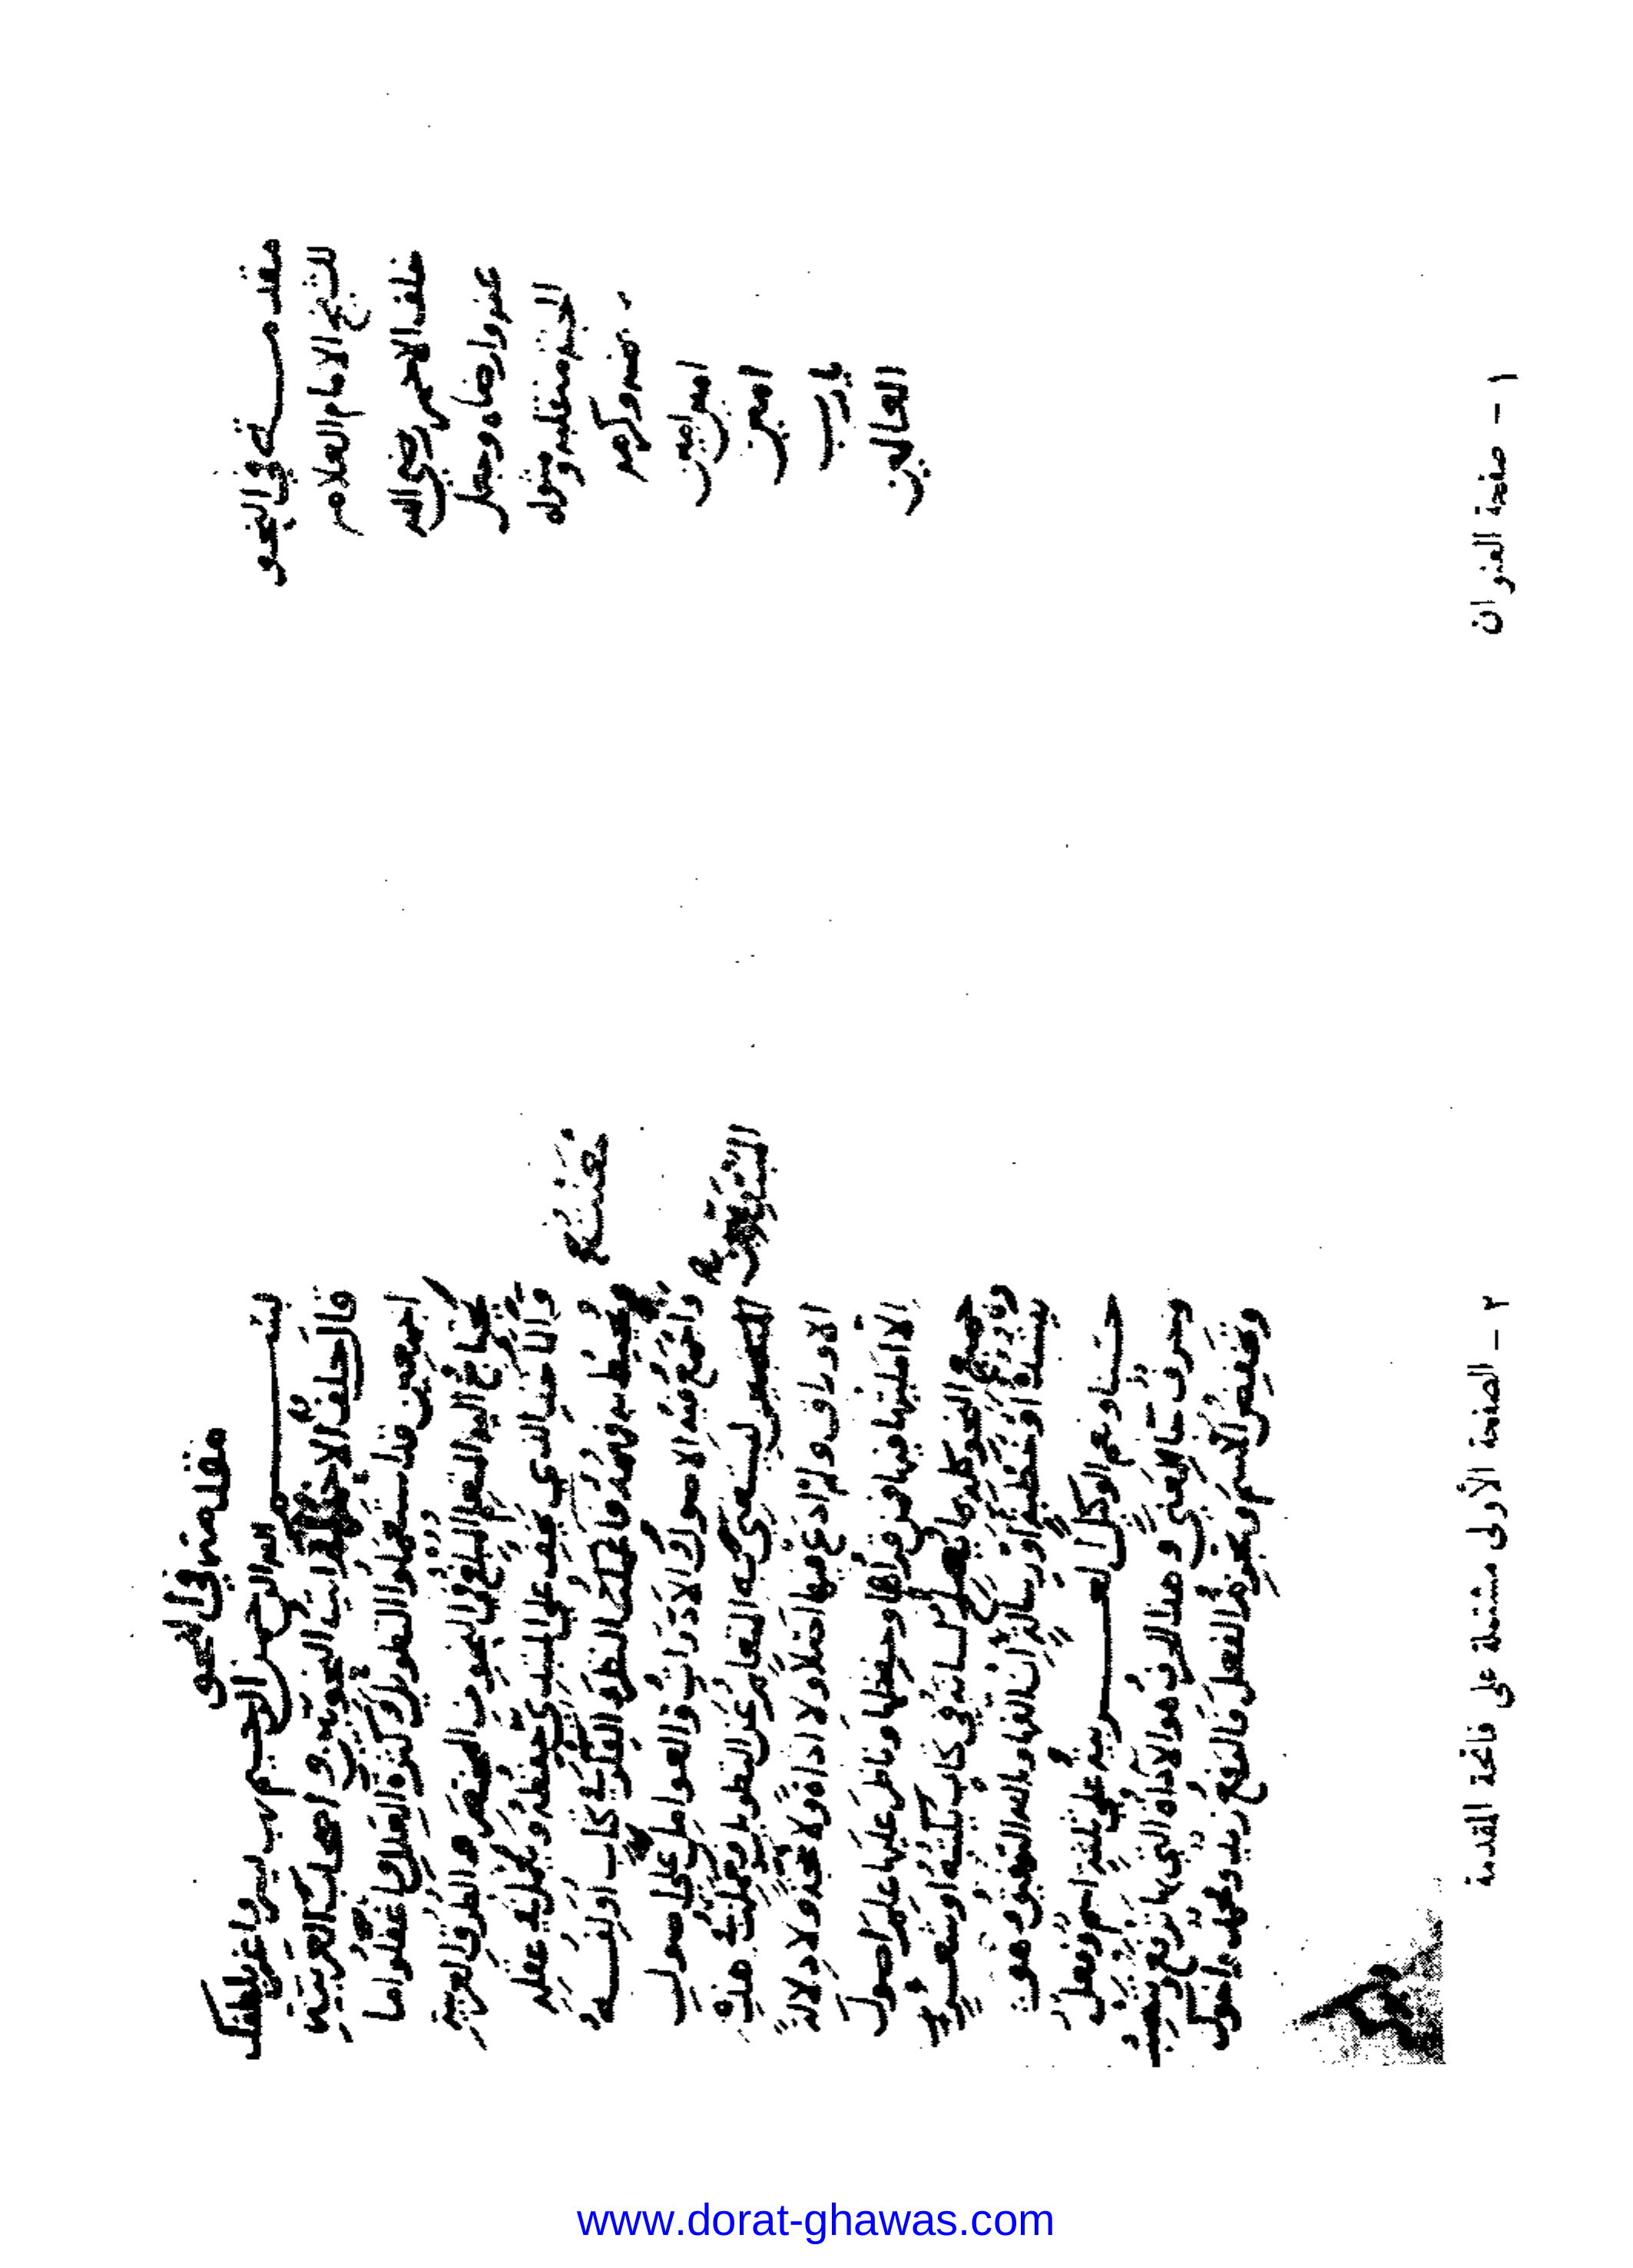 مقدمة في النحو
للشيخ الامام العلامه
خلف الاحمر رضي الله
عنه وارضاه وجعل
الجنة منقلبه ومثواه
بمنه وكرمه
امين امين
امين
يارب
العالمين
١ - صفحة العنوان
مقدمة في النحو
بسم الله الرحمن الرحيم رب يسر واعن بلطفك
قال خلف الاحمر لما رايت النحويين واصحاب العربية
اجمعين قد استعملوا التطويل وكثرة العلل واغفلوا ما
يحتاج اليه المتعلم المتبلغ في النحو من المختصر والطرق العربية
والماخذ الذي يخف على المبتدي حفظه ويعمل به عقله
ويحيط به فهمه فامعنت النظر والفكر في كتاب اولفه
واجمع فيه الاصول والادوات والعوامل على اصول
المبتدئين ليستغني به المتعلم عن التطويل فعملت هذه
الاوراق ولم ادع فيها اصلا ولا اداة ولا حجة ولا دلالة
الا امليتها فيها فمن قراها وحفظها وناظر عليها علم اصول
النحو كله مما يصلح لسانه في كتاب يكتبه او شعر
ينشده او خطبة او رسالة ان الفها وبالله التوفيق وهو
حسبنا ونعم الوكيل العربية على ثلاثة اسم وفعل
وحرف جاء لمعنى وهذا الحرف هو الاداة التي بها ترفع وتنصب
وتخفض الاسم وتجزم الفعل فالرفع زيد ومحمد
٢ - الصفحة الأولى مشتملة على فاتحة المقدمة
www.dorat-ghawas.com